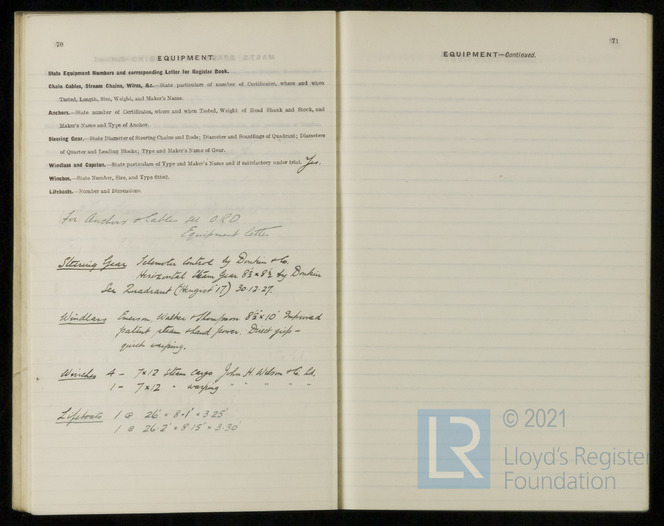 70
EQUIPMENT.
State Equipment Numbers and corresponding Letter for Register Book.
Chain Cables, Stream Chains, Wires, &c.—State particulars of number of Certificates, where and when
Tested, Length, Size, Weight, and Maker's Name.
Anchors.—State number of Certificates, where and when Tested, Weight of Head Shank and Stock, and
Maker's Name and Type of Anchor.
Steering Gear.—State Diameter of Steering Chains and Rods; Diameter and Scantlings of Quadrant; Diameters
of Quarter and Leading Blocks; Type and Maker's Name of Gear.
Windlass and Capstan.—State particulars of Type and Maker's Name and if satisfactory under trial. Yes.
Winches.—State Number, Size, and Type fitted.
Lifeboats.—Number and Dimensions.
For Anchors & Cables see
Equipment letter
Steering Gear Telemotor Control by Donkin & Co.
Horizontal Steam Gear 8½ x 8½ by Donkin
See Quadrant 30.12.27.
Windlass Emerson, Walker & Thompson 8½" x 10" Improved
patent steam & hand power. Direct grip -
quick warping.
Winches 4 - 7 x 12 Steam Cargo John H Wilson & Co. Ld.
1 - 7 x 12 " warping " " " "
Lifeboats 1 @ 26' x 8.1' x 3.25'
1 @ 26.2' x 8.15' x 3.30'
71
EQUIPMENT—Continued.
LR
© 2021
Lloyd's Register
Foundation